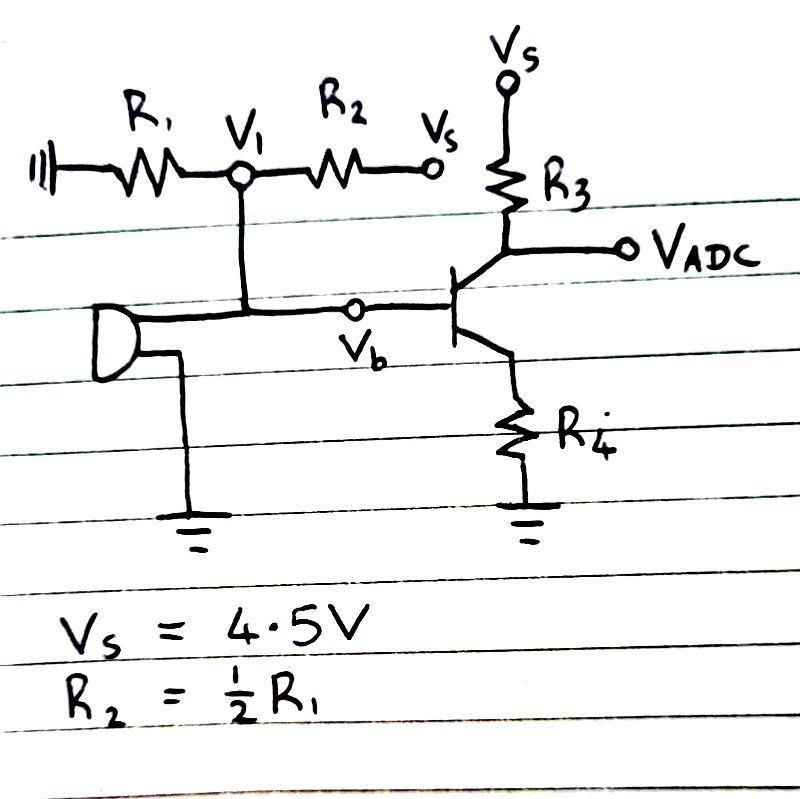 Vs
R₁ V₁ R₂ Vs
R3
VADC
Vb
R4
Vs = 4.5V
R₂ = ½ R₁